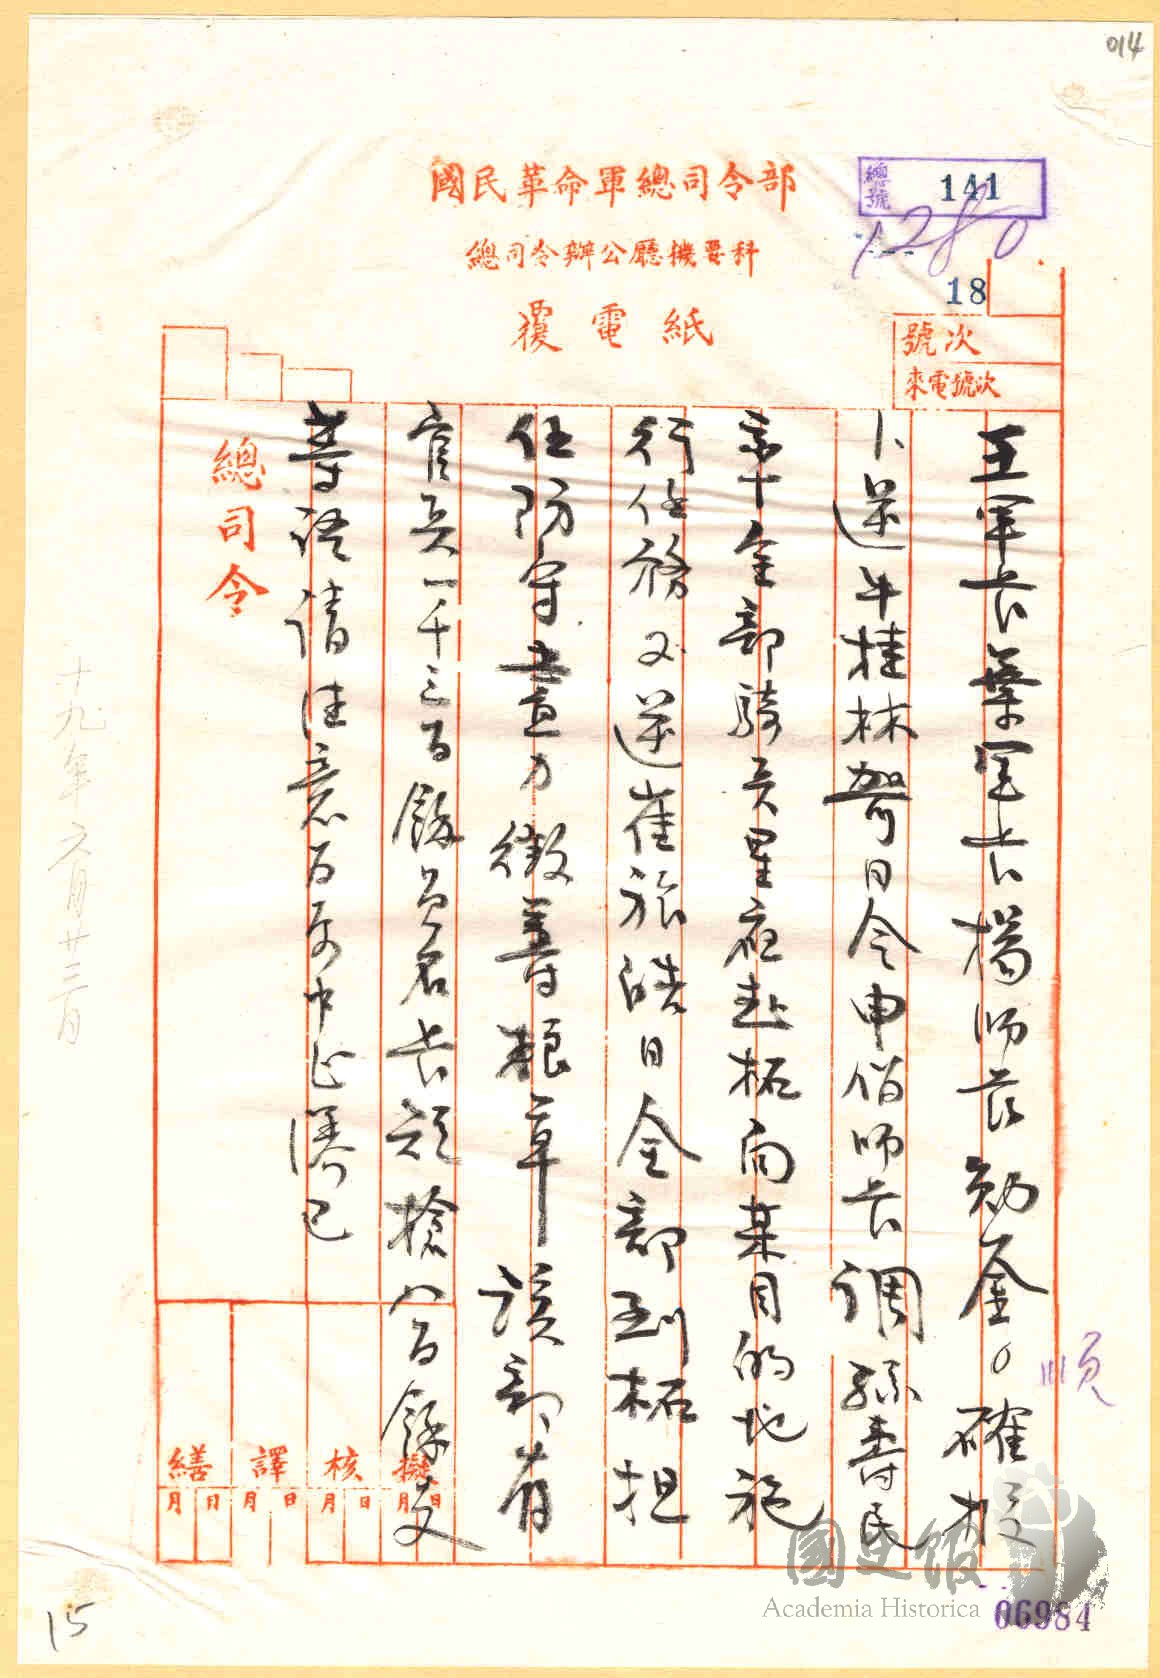 014
國民革命軍總司令部
總司令辦公廳機要科
覆電紙
總號 141
1280
18
號次
來電號次
王軍長葉軍長楊師長勛鑒。確报
卜逆牛桂林哿日令申偕師長調孫壽民
率全部騎兵星夜赴柘向某目的地施
行任務又逆崔旅皓日全部到柘担
任防守盡力徵籌粮草該部有
官兵一千三百餘員名長短槍八百餘支
等語請注意為要中正漾巳
總司令
順
十九年六月廿三日
擬 核 譯 繕
月 日 月 日 月 日 月 日
15
國史館
Academia Historica
06984